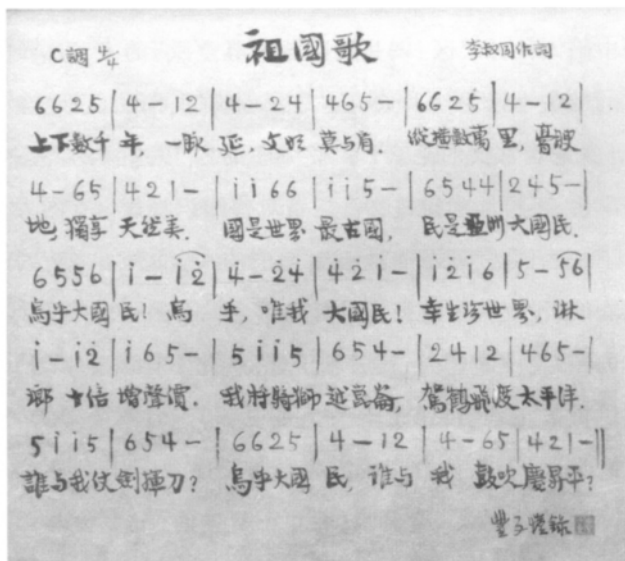 祖國歌
C調 4/4 李叔同作詞
6625|4-12|4-24|465-|6625|4-12|
上下數千年,一脉延,文明莫与肩.縱橫數萬里,膏腴
4-65|421-|i i 6 6|i i 5-|6544|245-|
地,獨享天然美.國是世界最古國,民是亞洲大國民.
6556|i-i2̇|4̇-2̇4̇|4̇2̇i-|i2̇i6|5-56|
烏乎大國民!烏乎,唯我大國民!幸生珍世界,琳
i-i2̇|i65-|5ii5|654-|2412|465-|
瑯十倍增聲價.我將騎獅越崑崙,駕鶴飛度太平洋.
5ii5|654-|6625|4-12|4-65|421-||
誰与我仗劍揮刀?烏乎大國民,誰与我鼓吹慶昇平?
豐子愷錄